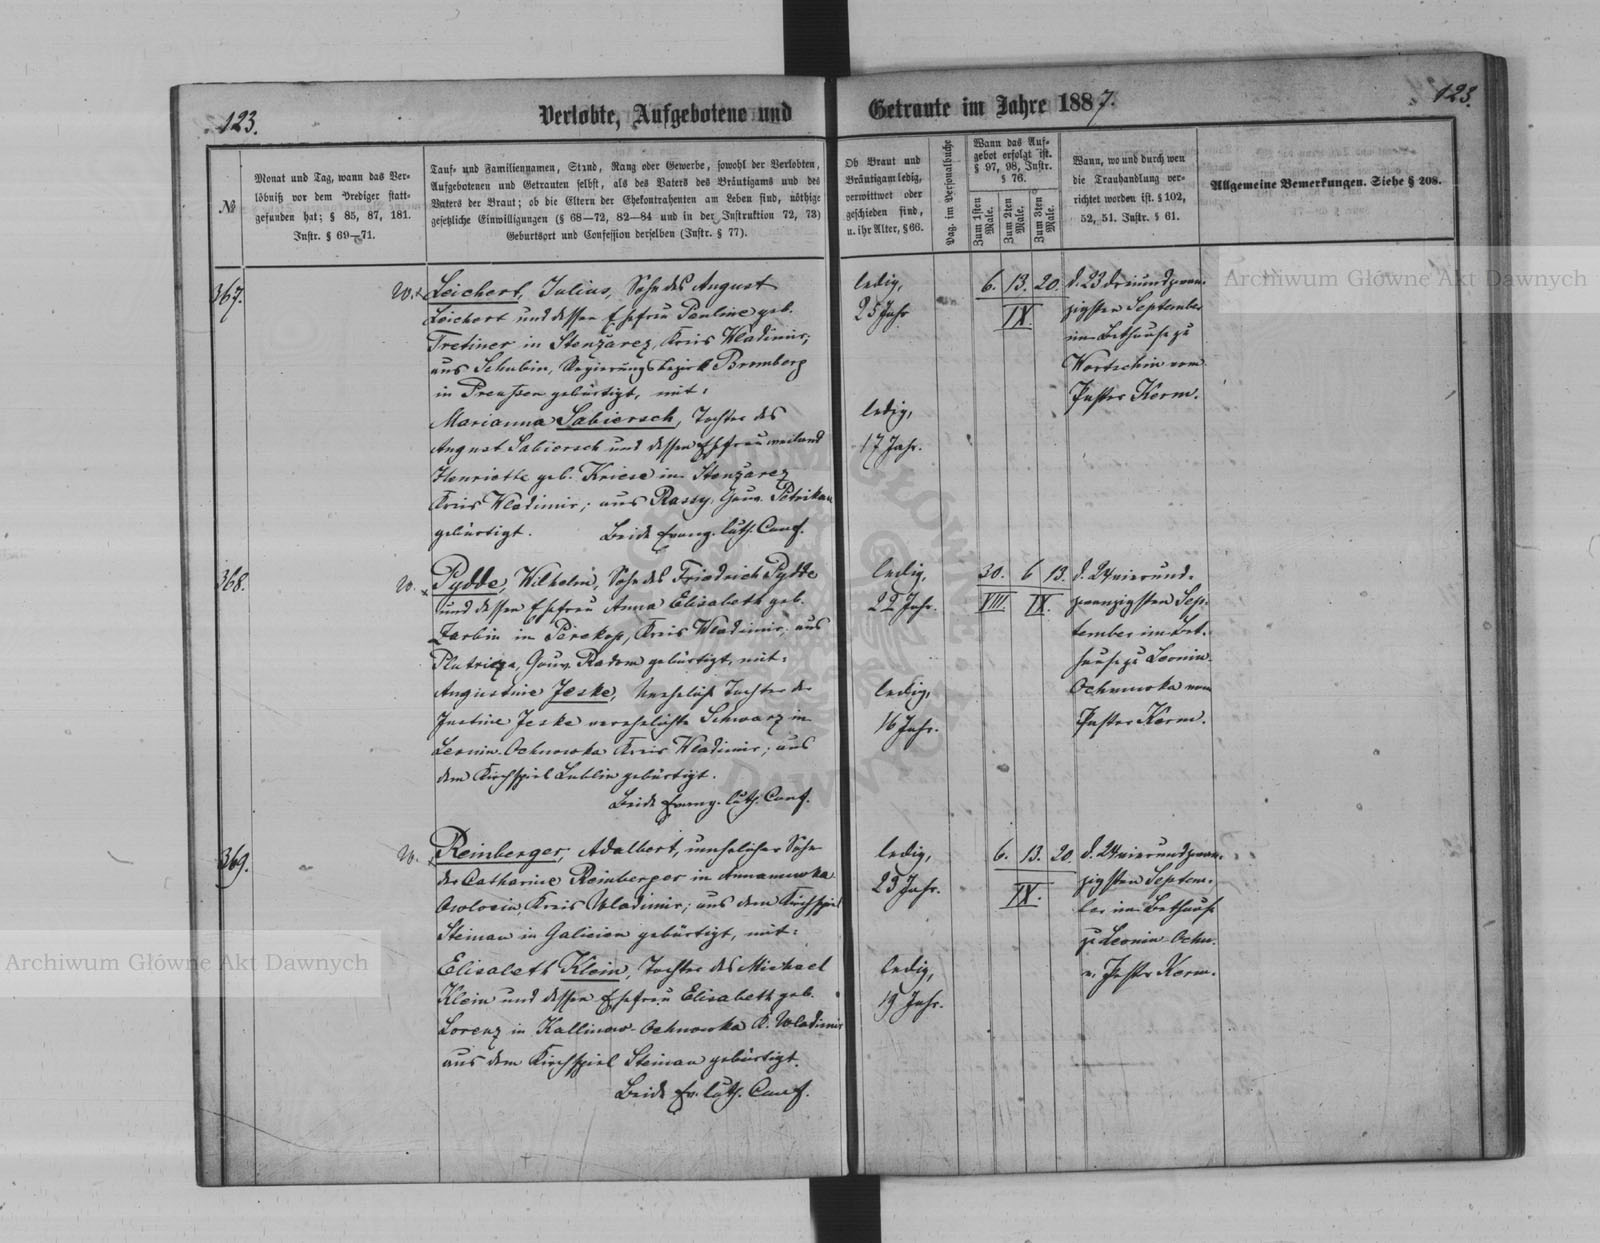 123.
Verlobte, Aufgebotene und
Getraute im Jahre 1887.
123.
№
Monat und Tag, wann das Ver-
löbniß vor dem Prediger statt-
gefunden hat; § 85, 87, 181.
Instr. § 69—71.
Tauf- und Familiennamen, Stand, Rang oder Gewerbe, sowohl der Verlobten,
Aufgebotenen und Getrauten selbst, als des Vaters des Bräutigams und des
Vaters der Braut; ob die Eltern der Ehekontrahenten am Leben sind, nöthige
gesetzliche Einwilligungen (§ 68—72, 82—84 und in der Instruktion 72, 73)
Geburtsort und Confession derselben (Instr. § 77).
Ob Braut und
Bräutigam ledig,
verwittwet oder
geschieden sind,
u. ihr Alter, § 66.
Pag. im Personalbuche
Wann das Auf-
gebot erfolgt ist.
§ 97, 98, Instr.
§ 76.
Zum 1sten Male.
Zum 2ten Male.
Zum 3ten Male.
Wann, wo und durch wen
die Trauhandlung ver-
richtet worden ist. § 102,
52, 51. Instr. § 61.
Allgemeine Bemerkungen. Siehe § 208.
367.
W.
Leichert, Julius, Sohn des August
Leichert und dessen Ehefrau Pauline geb.
Tretiner in Stenzarez, Kreis Wladimir;
aus Schubin, Regierungsbezirk Bromberg
in Preussen gebürtigt, mit:
Marianna Labiersch, Tochter des
August Labiersch und dessen Ehefrau weiland
Henriette geb. Kriese in Stenzarez
Kreis Wladimir; aus Rassy, Gouv. Petrikau
gebürtigt. Beide Evang. luth. Conf.
ledig,
25 Jahr
ledig,
17 Jahr.
6. 13. 20.
IX
d. 23 dreiundzwan-
zigsten September
im Bethause zu
Wortschin vom
Pastor Kerm.
368.
W.
Pydde, Wilhelm, Sohn des Friedrich Pydde
und dessen Ehefrau Anna Elisabeth geb.
Zarbin in Perekop, Kreis Wladimir; aus
Gouv. Radom gebürtigt, mit:
Augustine Jeske, unehelich Tochter der
Justine Jeske verehelichte Schwarz in
Leonin-Ochnowka Kreis Wladimir; aus
dem Kirchspiel Lublin gebürtigt.
Beide Evang. luth. Conf.
ledig,
22 Jahr.
ledig,
16 Jahr.
30. 6 13.
VIII. IX.
d. 24 vierund-
zwanzigsten Sep-
tember im Bet-
hause zu Leonin-
Ochnowka vom
Pastor Kerm.
369.
W.
Reinberger, Adalbert, unehelicher Sohn
der Catharine Reinberger in Annanowka
Kreis Wladimir; aus dem Kirchspiel
Steinau in Galicien gebürtigt, mit:
Elisabeth Klein, Tochter des Michael
Klein und dessen Ehefrau Elisabeth geb.
Lorenz in Kallinow-Ochnowka K. Wladimir
aus dem Kirchspiel Steinau gebürtigt.
Beide Ev. luth. Conf.
ledig,
23 Jahr.
ledig,
19 Jahr.
6. 13. 20.
IX.
d. 24 vierundzwan-
zigsten Septem-
ber im Bethause
zu Leonin-Ochn.
v. Pastor Kerm.
Archiwum Główne Akt Dawnych
Archiwum Główne Akt Dawnych